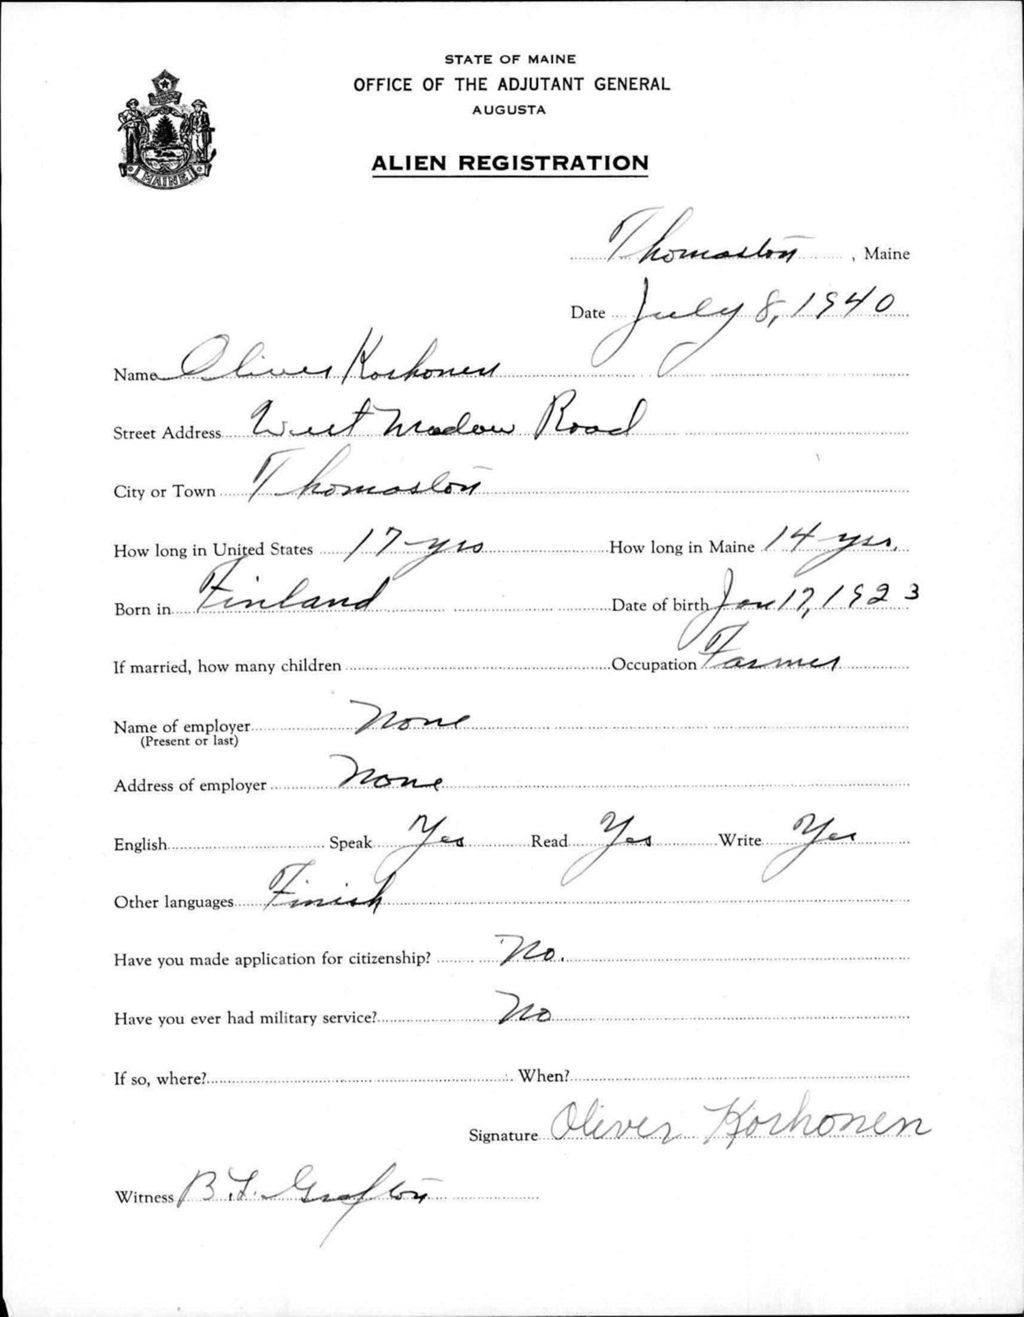 STATE OF MAINE
OFFICE OF THE ADJUTANT GENERAL
AUGUSTA
ALIEN REGISTRATION
MAINE
Thomaston, Maine
Date July 8, 1940
Name Oliver Korhonen
Street Address West Madow Road
City or Town Thomaston
How long in United States 17 yrs How long in Maine 14 yrs.
Born in Finland Date of birth Jan 17, 1923
If married, how many children Occupation Farmer
Name of employer None
(Present or last)
Address of employer None
English Speak Yes Read Yes Write Yes
Other languages Finish
Have you made application for citizenship? No.
Have you ever had military service? No
If so, where? When?
Signature Oliver Korhonen
Witness B.F. Grafton